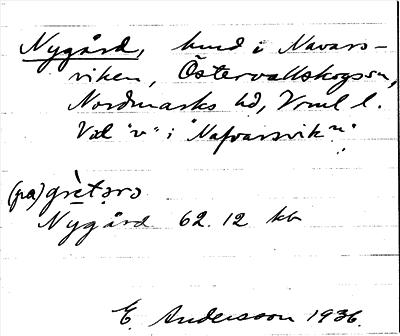 Nygård, hmd i Navars-
viken, Östervallskogs sn,
Nordmarks hd, Vrml l.
Val "v" i "Nafvarsvik".
(pa) grètərs
Nygård 62.12 kb
E. Andersson 1936.